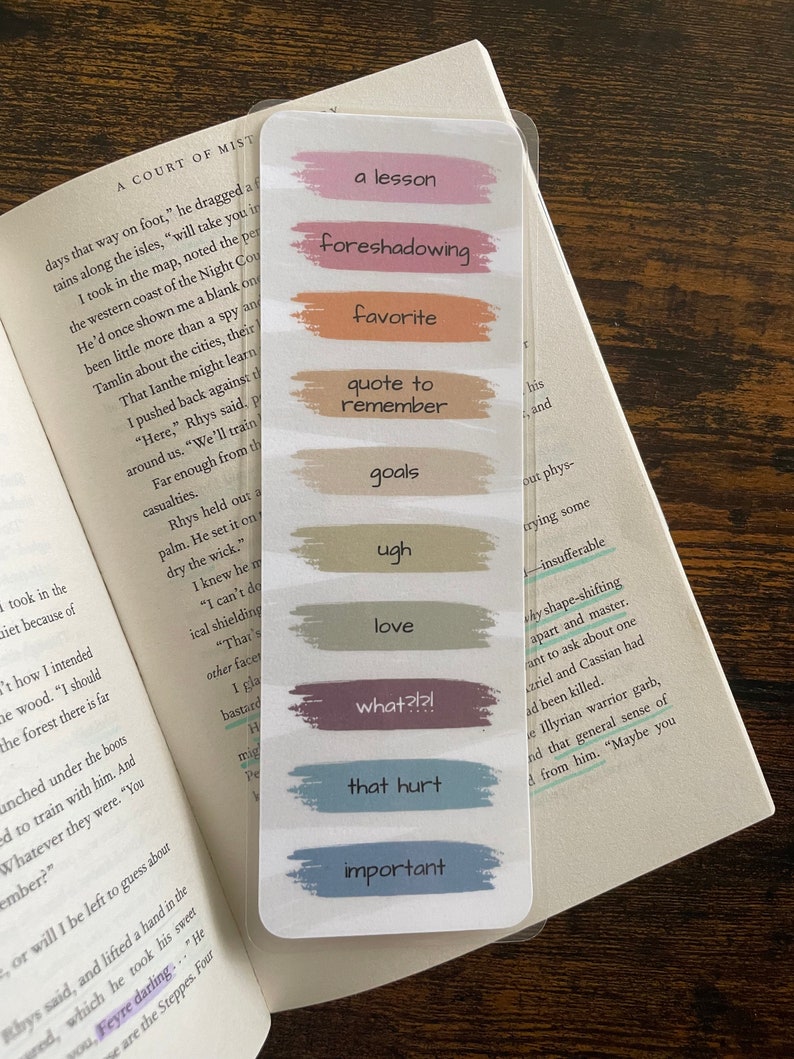 A COURT OF MIST
days that way on foot,” he dragged a
tains along the isles, “will take you in
I took in the map, noted the
the western coast of the Night
He’d once shown me a blank one
been little more than a spy and
Tamlin about the cities, their
That Ianthe might learn
I pushed back against the
“Here,” Rhys said,
around us. “We’ll train
Far enough from
casualties.
Rhys held out a
palm. He set it on
dry the wick.”
I knew he
“I can’t do
ical shielding
“That’s
other
I
bastard
a lesson
foreshadowing
favorite
quote to
remember
goals
ugh
love
what?!?!
that hurt
important
his
and
out phys-
trying some
—insufferable
why shape-shifting
apart and master.
to ask about one
Azriel and Cassian had
been killed.
Illyrian warrior garb,
that general sense of
from him. “Maybe you
I took in the
because of
how I intended
wood. “I should
the forest there is far
under the boots
to train with him. And
Whatever they were. “You
or will I be left to guess about
Rhys said, and lifted a hand in the
which he took his sweet
you, Feyre darling . . .” He
are the Steppes. Four